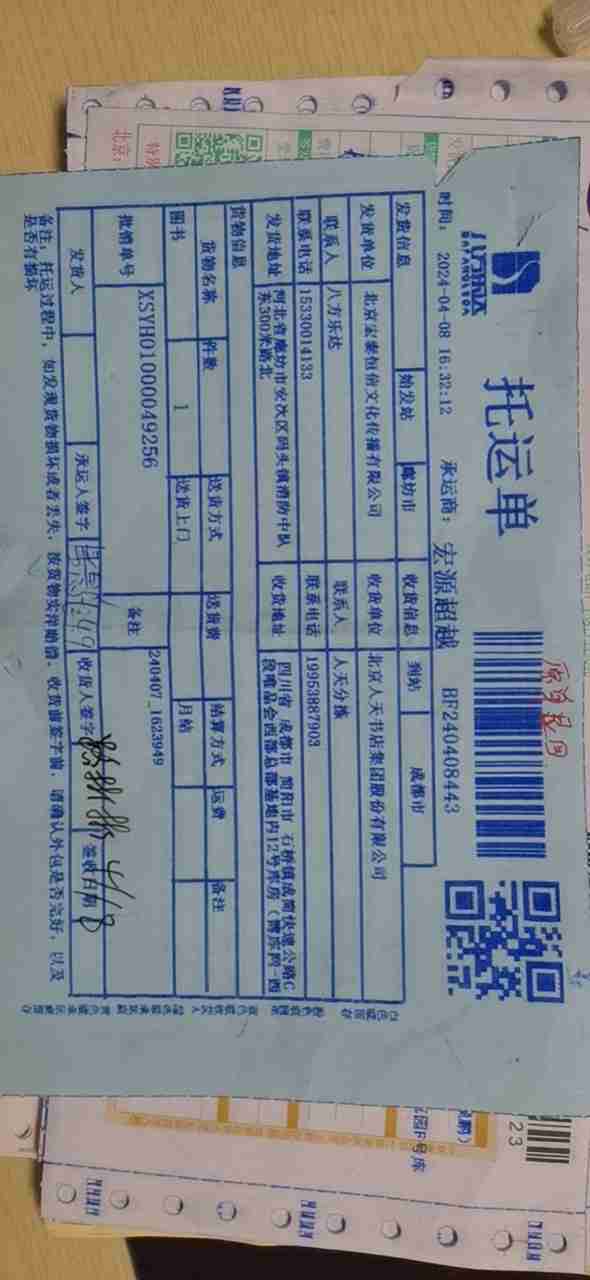 八方乐达
BAFANGLEDA
托运单
原单返回
时间： 2024-04-08 16:32:12 承运商： 宏源超越 BF240408443
发货信息 始发站 廊坊市 收货信息 到站 成都市
发货单位 北京宏泰恒信文化传播有限公司 收货单位 北京人天书店集团股份有限公司
联系人 八方乐达 联系人 人天分拣
联系电话 15330014133 联系电话 19953887903
发货地址 河北省廊坊市安次区码头镇消防中队东300米路北 收货地址 四川省 成都市 简阳市 石桥镇成简快速公路C段唯品会西部总部基地内12号库房（博库网-西
货物信息
货物名称 件数 送货方式 送货费 结算方式 运费 备注
图书 1 送货上门 月结
批销单号 XSYH01000049256 备注 240407_1623949
发货人 承运人签字 收货人签字 签收日期 4/18
备注：托运过程中，如发现货物损坏或者丢失，按货物实洋赔偿。收货前签字前，请确认外包是否完好，以及是否有损坏
23
北京：
特别